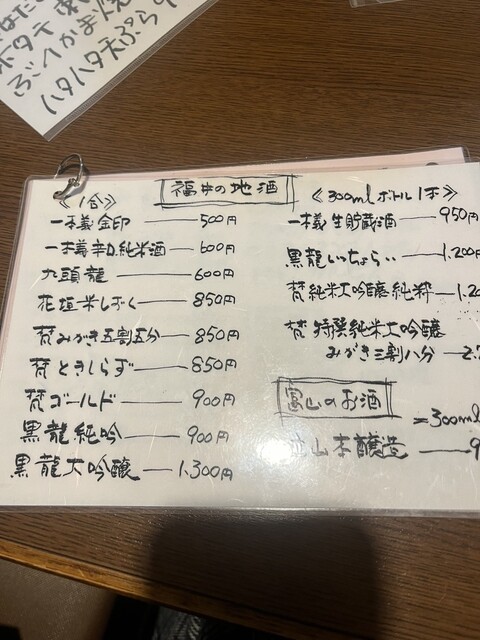 ホタテ
ぶりかま焼
ハタハタ天ぷら
福井の地酒
《1合》
一本義金印 500円
一本義辛口純米酒 600円
九頭龍 600円
花垣米しずく 850円
梵みがき五割五分 850円
梵ときしらず 850円
梵ゴールド 900円
黒龍純吟 900円
黒龍大吟醸 1.300円
《300mlボトル1本》
一本義生貯蔵酒 950円
黒龍いっちょらい 1.200円
梵純米大吟醸純粋 1.20
梵特撰純米大吟醸
みがき三割八分 2.
富山のお酒
=300ml
立山本醸造 9